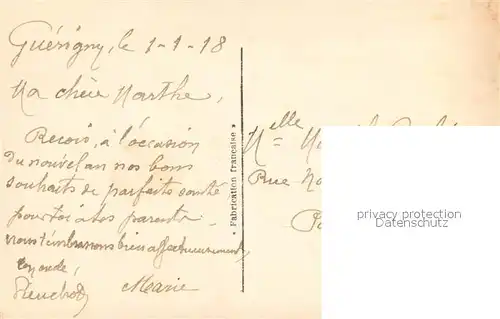 Guérigny, le 1-1-18
Ma chère Marthe,
Recois, à l'occasion
du nouvel an nos bons
souhaits de parfaite santé
pour toi & tes parents.
nous t'embrassons bien affectueusement
Marie
• Fabrication française •
Melle
Rue
privacy protection
Datenschutz